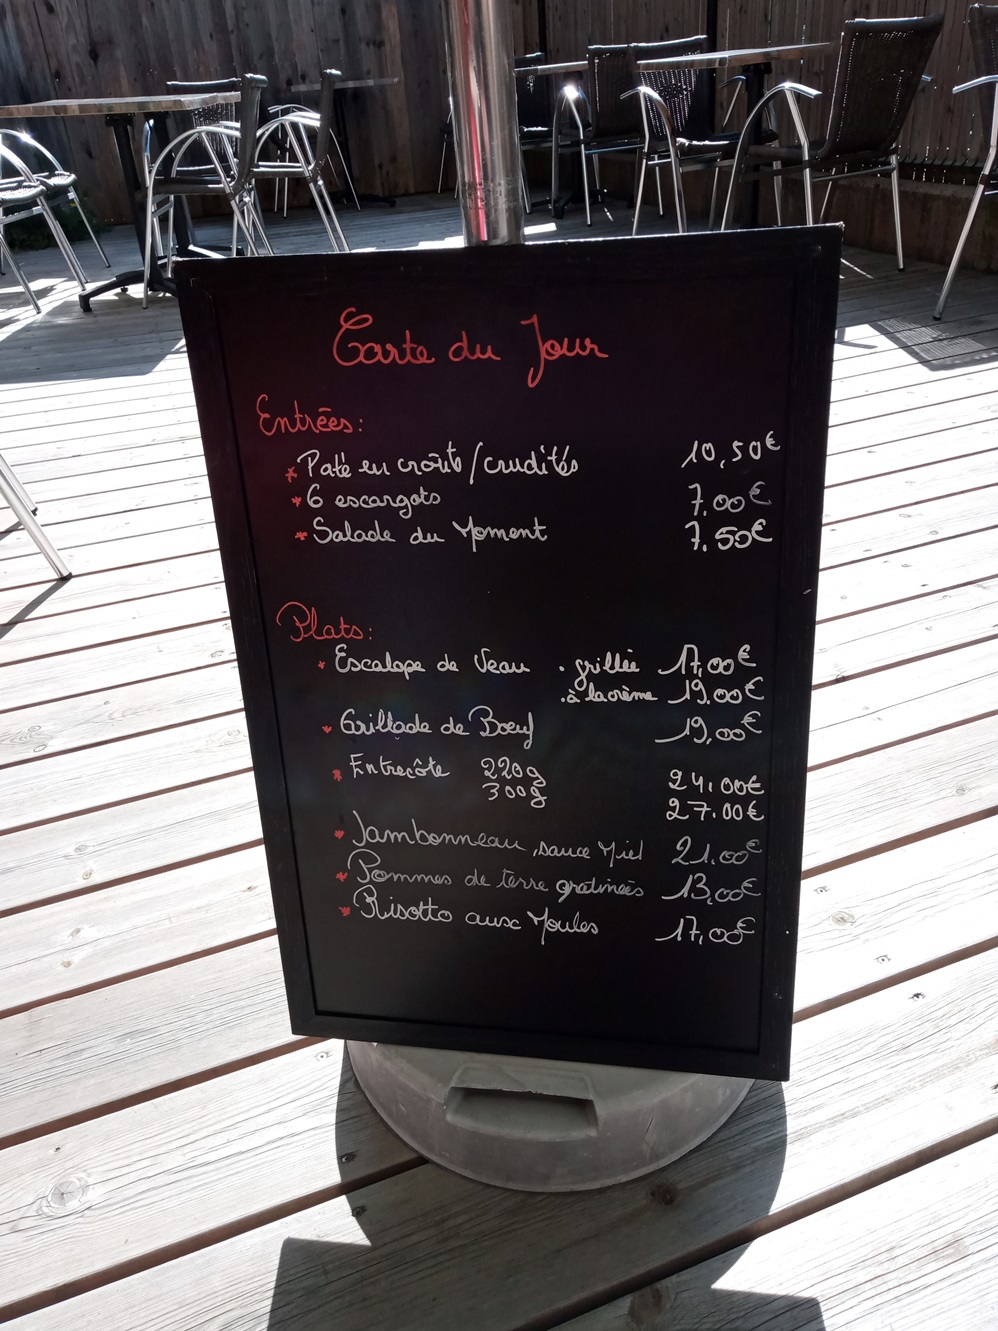 Carte du Jour
Entrées:
* Paté en croûte/crudités 10,50€
* 6 escargots 7.00€
* Salade du Moment 7.50€
Plats:
* Escalope de Veau . grillée 17,00€
. à la crème 19.00€
* Grillade de Bœuf 19,00€
* Entrecôte 220g 24.00€
300g 27.00€
* Jambonneau, sauce Miel 21.00€
* Pommes de terre gratinées 13,00€
* Risotto aux Moules 17,00€